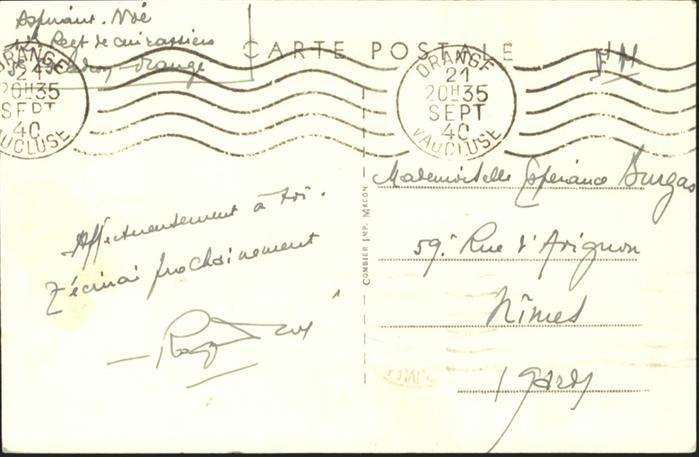 Aspirant. Noé
Regt de cuirassiers
Orange
CARTE POSTALE
FM
ORANGE
21
20H35
SEPT
40
VAUCLUSE
ORANGE
21
20H35
SEPT
40
VAUCLUSE
Affectueusement à toi.
T'écrirai prochainement
COMBIER IMP. MACON
Mademoiselle Espérance Burgas
59. Rue d'Avignon
Nîmes
Gard